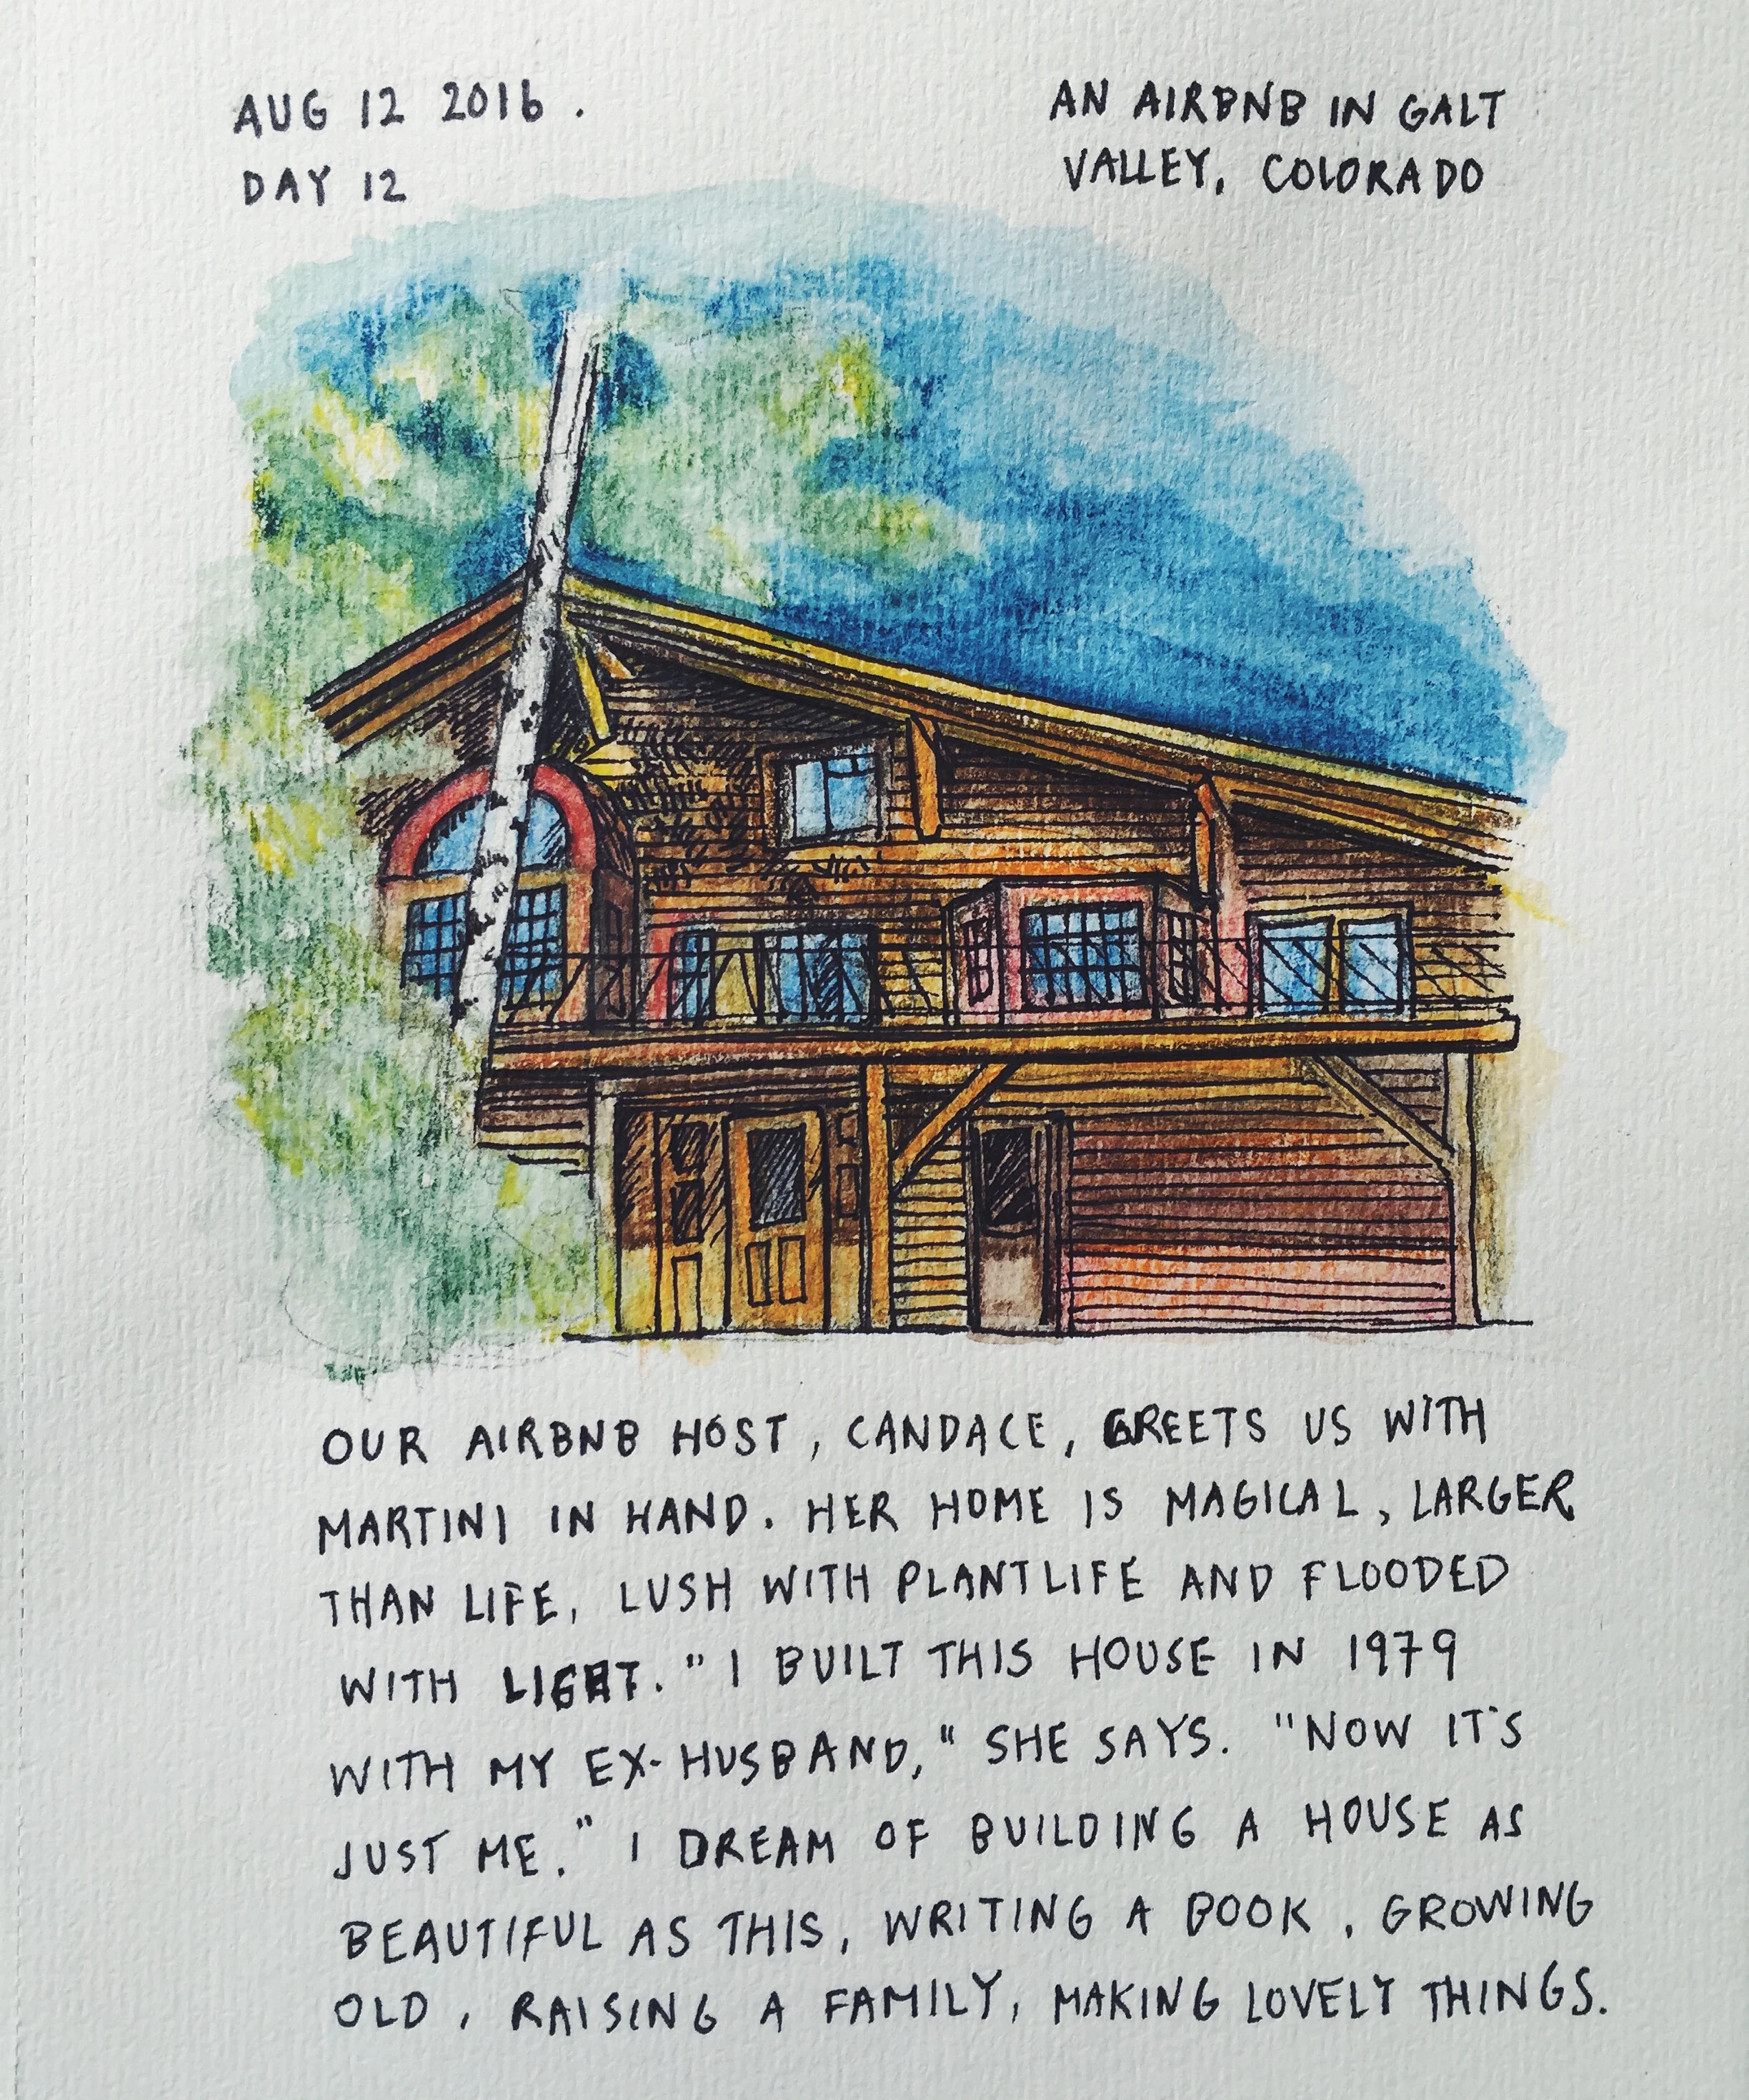 AUG 12 2016.
DAY 12
AN AIRBNB IN GALT
VALLEY, COLORADO
OUR AIRBNB HOST, CANDACE, GREETS US WITH
MARTINI IN HAND. HER HOME IS MAGICAL, LARGER
THAN LIFE, LUSH WITH PLANTLIFE AND FLOODED
WITH LIGHT. "I BUILT THIS HOUSE IN 1979
WITH MY EX-HUSBAND," SHE SAYS. "NOW IT'S
JUST ME." I DREAM OF BUILDING A HOUSE AS
BEAUTIFUL AS THIS, WRITING A BOOK, GROWING
OLD, RAISING A FAMILY, MAKING LOVELY THINGS.